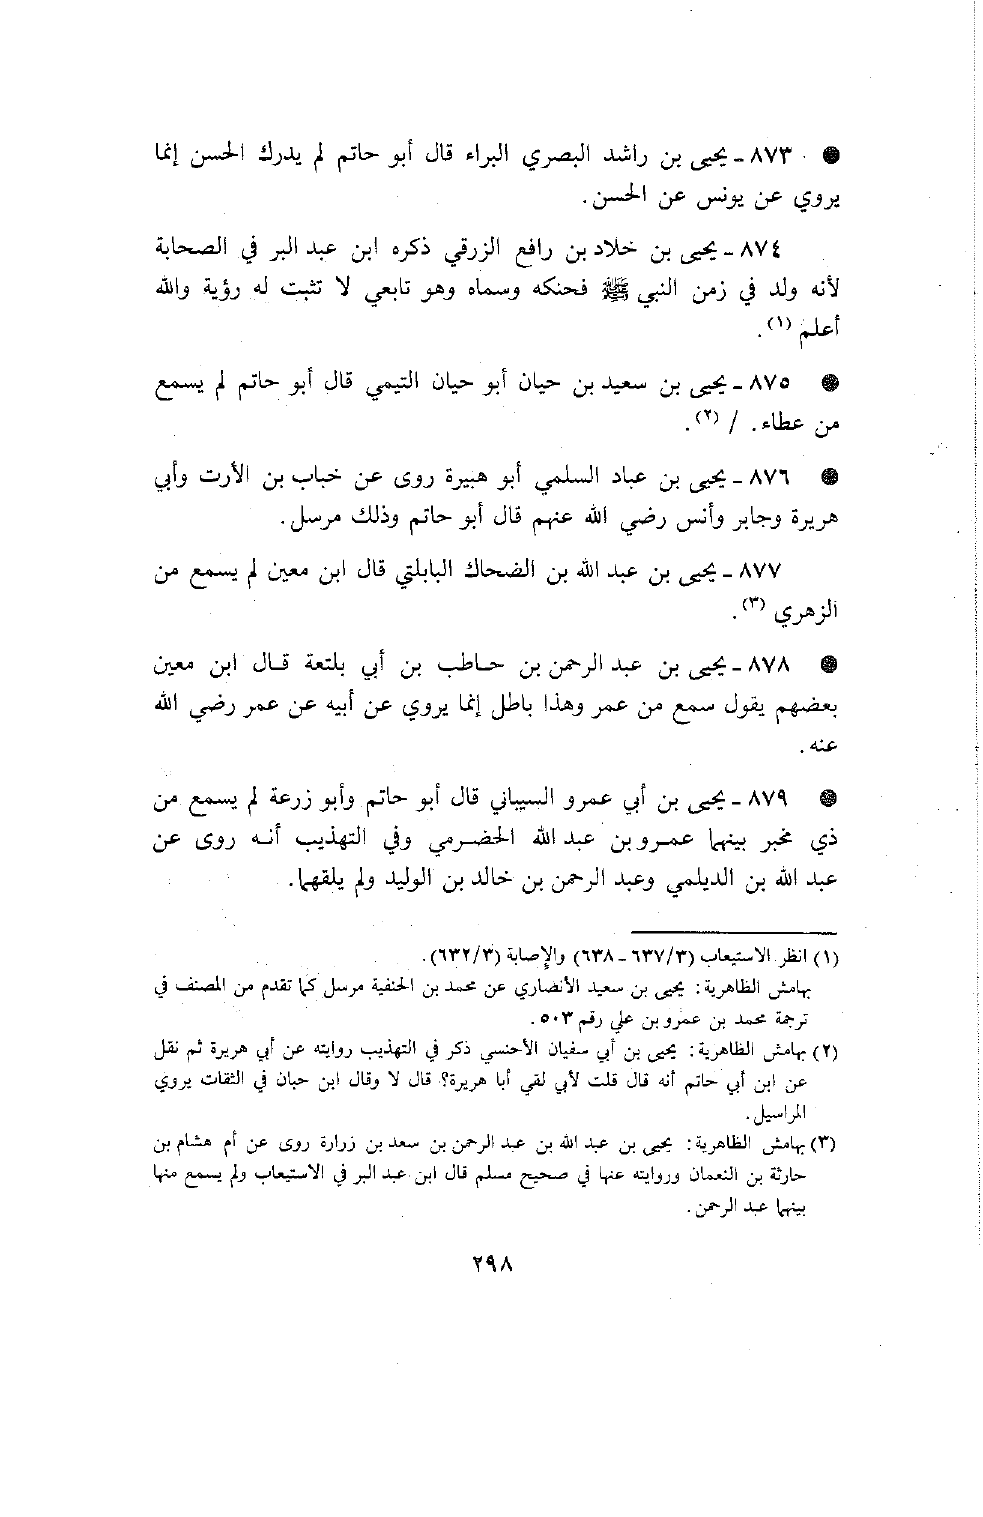 ● ٨٧٣ - يحيى بن راشد البصري البراء قال أبو حاتم لم يدرك الحسن إنما
يروي عن يونس عن الحسن.
٨٧٤ - يحيى بن خلاد بن رافع الزرقي ذكره ابن عبد البر في الصحابة
لأنه ولد في زمن النبي ﷺ فحنكه وسماه وهو تابعي لا تثبت له رؤية والله
أعلم (١).
● ٨٧٥ - يحيى بن سعيد بن حيان أبو حيان التيمي قال أبو حاتم لم يسمع
من عطاء. / (٢).
● ٨٧٦ - يحيى بن عباد السلمي أبو هبيرة روى عن خباب بن الأرت وأبي
هريرة وجابر وأنس رضي الله عنهم قال أبو حاتم وذلك مرسل.
٨٧٧ - يحيى بن عبد الله بن الضحاك البابلتي قال ابن معين لم يسمع من
الزهري (٣).
● ٨٧٨ - يحيى بن عبد الرحمن بن حاطب بن أبي بلتعة قال ابن معين
بعضهم يقول سمع من عمر وهذا باطل إنما يروي عن أبيه عن عمر رضي الله
عنه.
● ٨٧٩ - يحيى بن أبي عمرو السيباني قال أبو حاتم وأبو زرعة لم يسمع من
ذي مخبر بينهما عمرو بن عبد الله الحضرمي وفي التهذيب أنه روى عن
عبد الله بن الديلمي وعبد الرحمن بن خالد بن الوليد ولم يلقهما.
(١) انظر الاستيعاب (٣/ ٦٣٧ - ٦٣٨) والإصابة (٣/ ٦٣٢).
بهامش الظاهرية: يحيى بن سعيد الأنصاري عن محمد بن الحنفية مرسل كما تقدم من المصنف في
ترجمة محمد بن عمرو بن علي رقم ٥٠٣.
(٢) بهامش الظاهرية: يحيى بن أبي سفيان الأخنسي ذكر في التهذيب روايته عن أبي هريرة ثم نقل
عن ابن أبي حاتم أنه قال قلت لأبي لقي أبا هريرة؟ قال لا وقال ابن حبان في الثقات يروي
المراسيل.
(٣) بهامش الظاهرية: يحيى بن عبد الله بن عبد الرحمن بن سعد بن زرارة روى عن أم هشام بن
حارثة بن النعمان وروايته عنها في صحيح مسلم قال ابن عبد البر في الاستيعاب ولم يسمع منها
بينهما عبد الرحمن.
٢٩٨